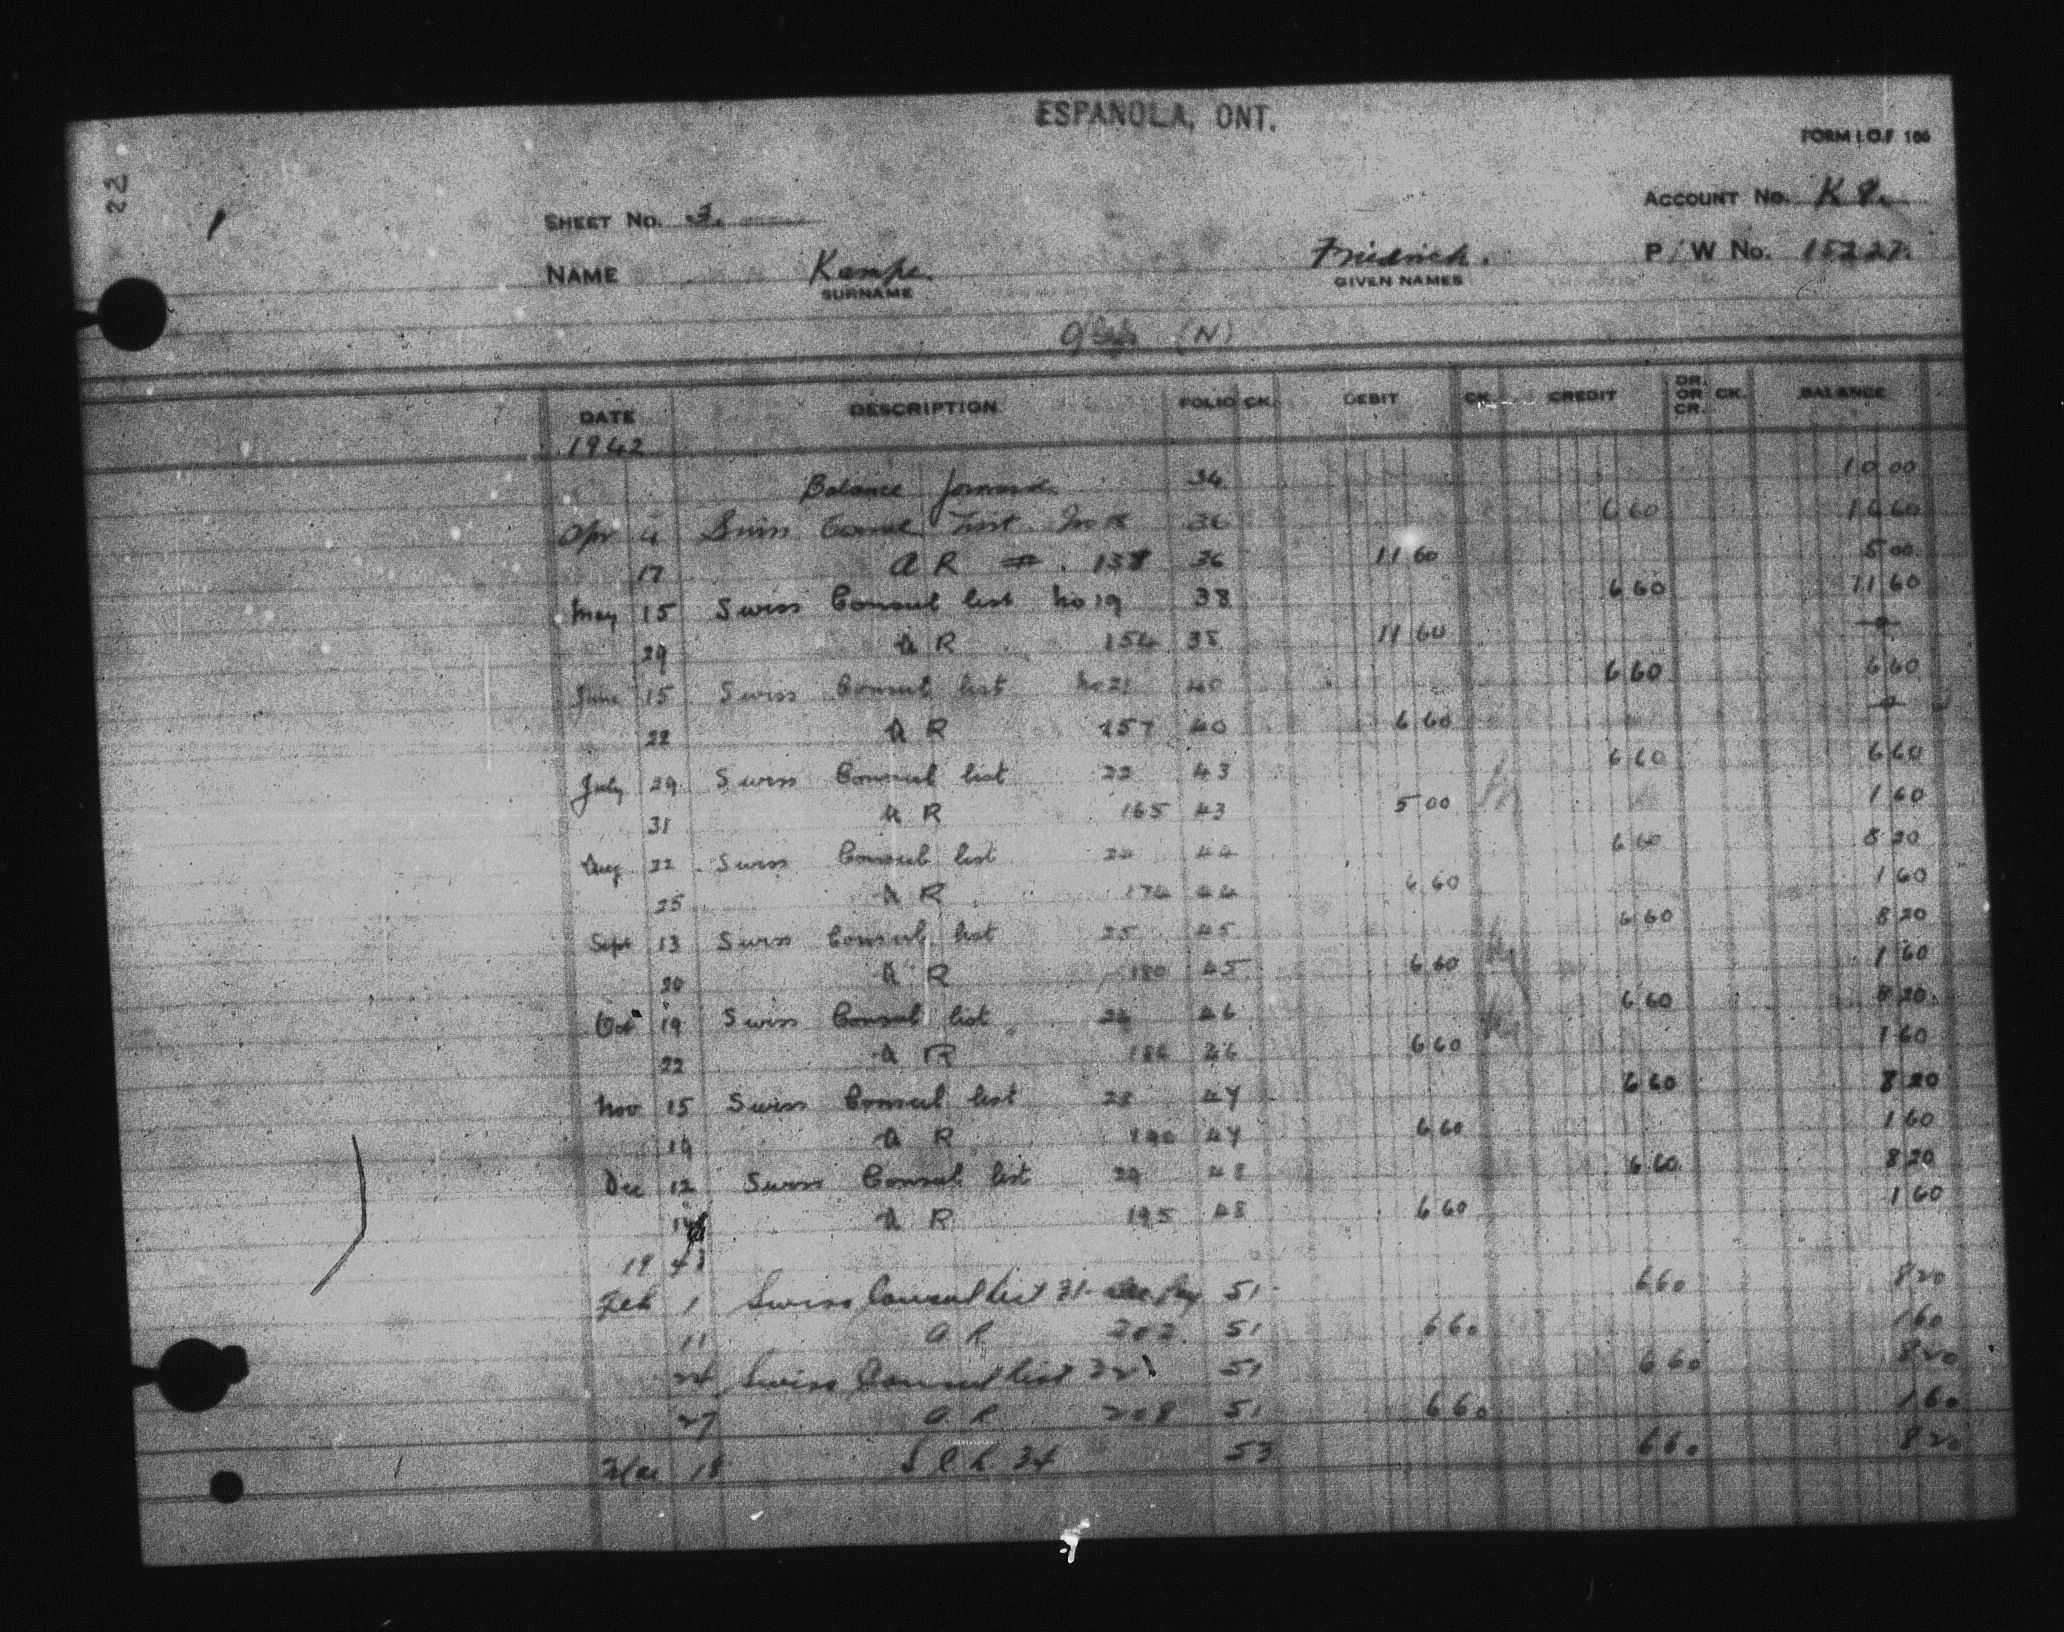 ESPANOLA, ONT.
FORM I.O.F 106
22
SHEET No. 3. ACCOUNT No. K 8.
NAME Kampe. Friedrich. P/W No. 15227.
SURNAME GIVEN NAMES
(N)
DATE DESCRIPTION FOLIO CK. DEBIT CK. CREDIT DR. OR CR. CK. BALANCE
1942
Balance forward 34 10 00
Apr 4 Swiss Consul List No 18 36 6 60 16 60
17 A R # 138 36 11 60 5 00
May 15 Swiss Consul list No 19 38 6 60 11 60
29 A R 154 38 11 60 0
June 15 Swiss Consul list No 21 40 6 60 6 60
22 A R 157 40 6 60 0
July 29 Swiss Consul list 22 43 6 60 6 60
31 A R 165 43 5 00 1 60
Aug 22 Swiss Consul list 24 44 6 60 8 20
25 A R 174 44 6 60 1 60
Sept 13 Swiss Consul list 25 45 6 60 8 20
20 A R 180 45 6 60 1 60
Oct 19 Swiss Consul list 26 46 6 60 8 20
22 A R 186 46 6 60 1 60
Nov 15 Swiss Consul list 28 47 6 60 8 20
19 A R 190 47 6 60 1 60
Dec 12 Swiss Consul list 29 48 6 60 8 20
14 A R 195 48 6 60 1 60
19 43
Feb 1 Swiss Consul list 31 51 6 60 8 20
11 A R 202 51 6 60 1 60
24 Swiss Consul list 32 51 6 60 8 20
27 A R 208 51 6 60 1 60
Mar 18 S C L 34 53 6 60 8 20